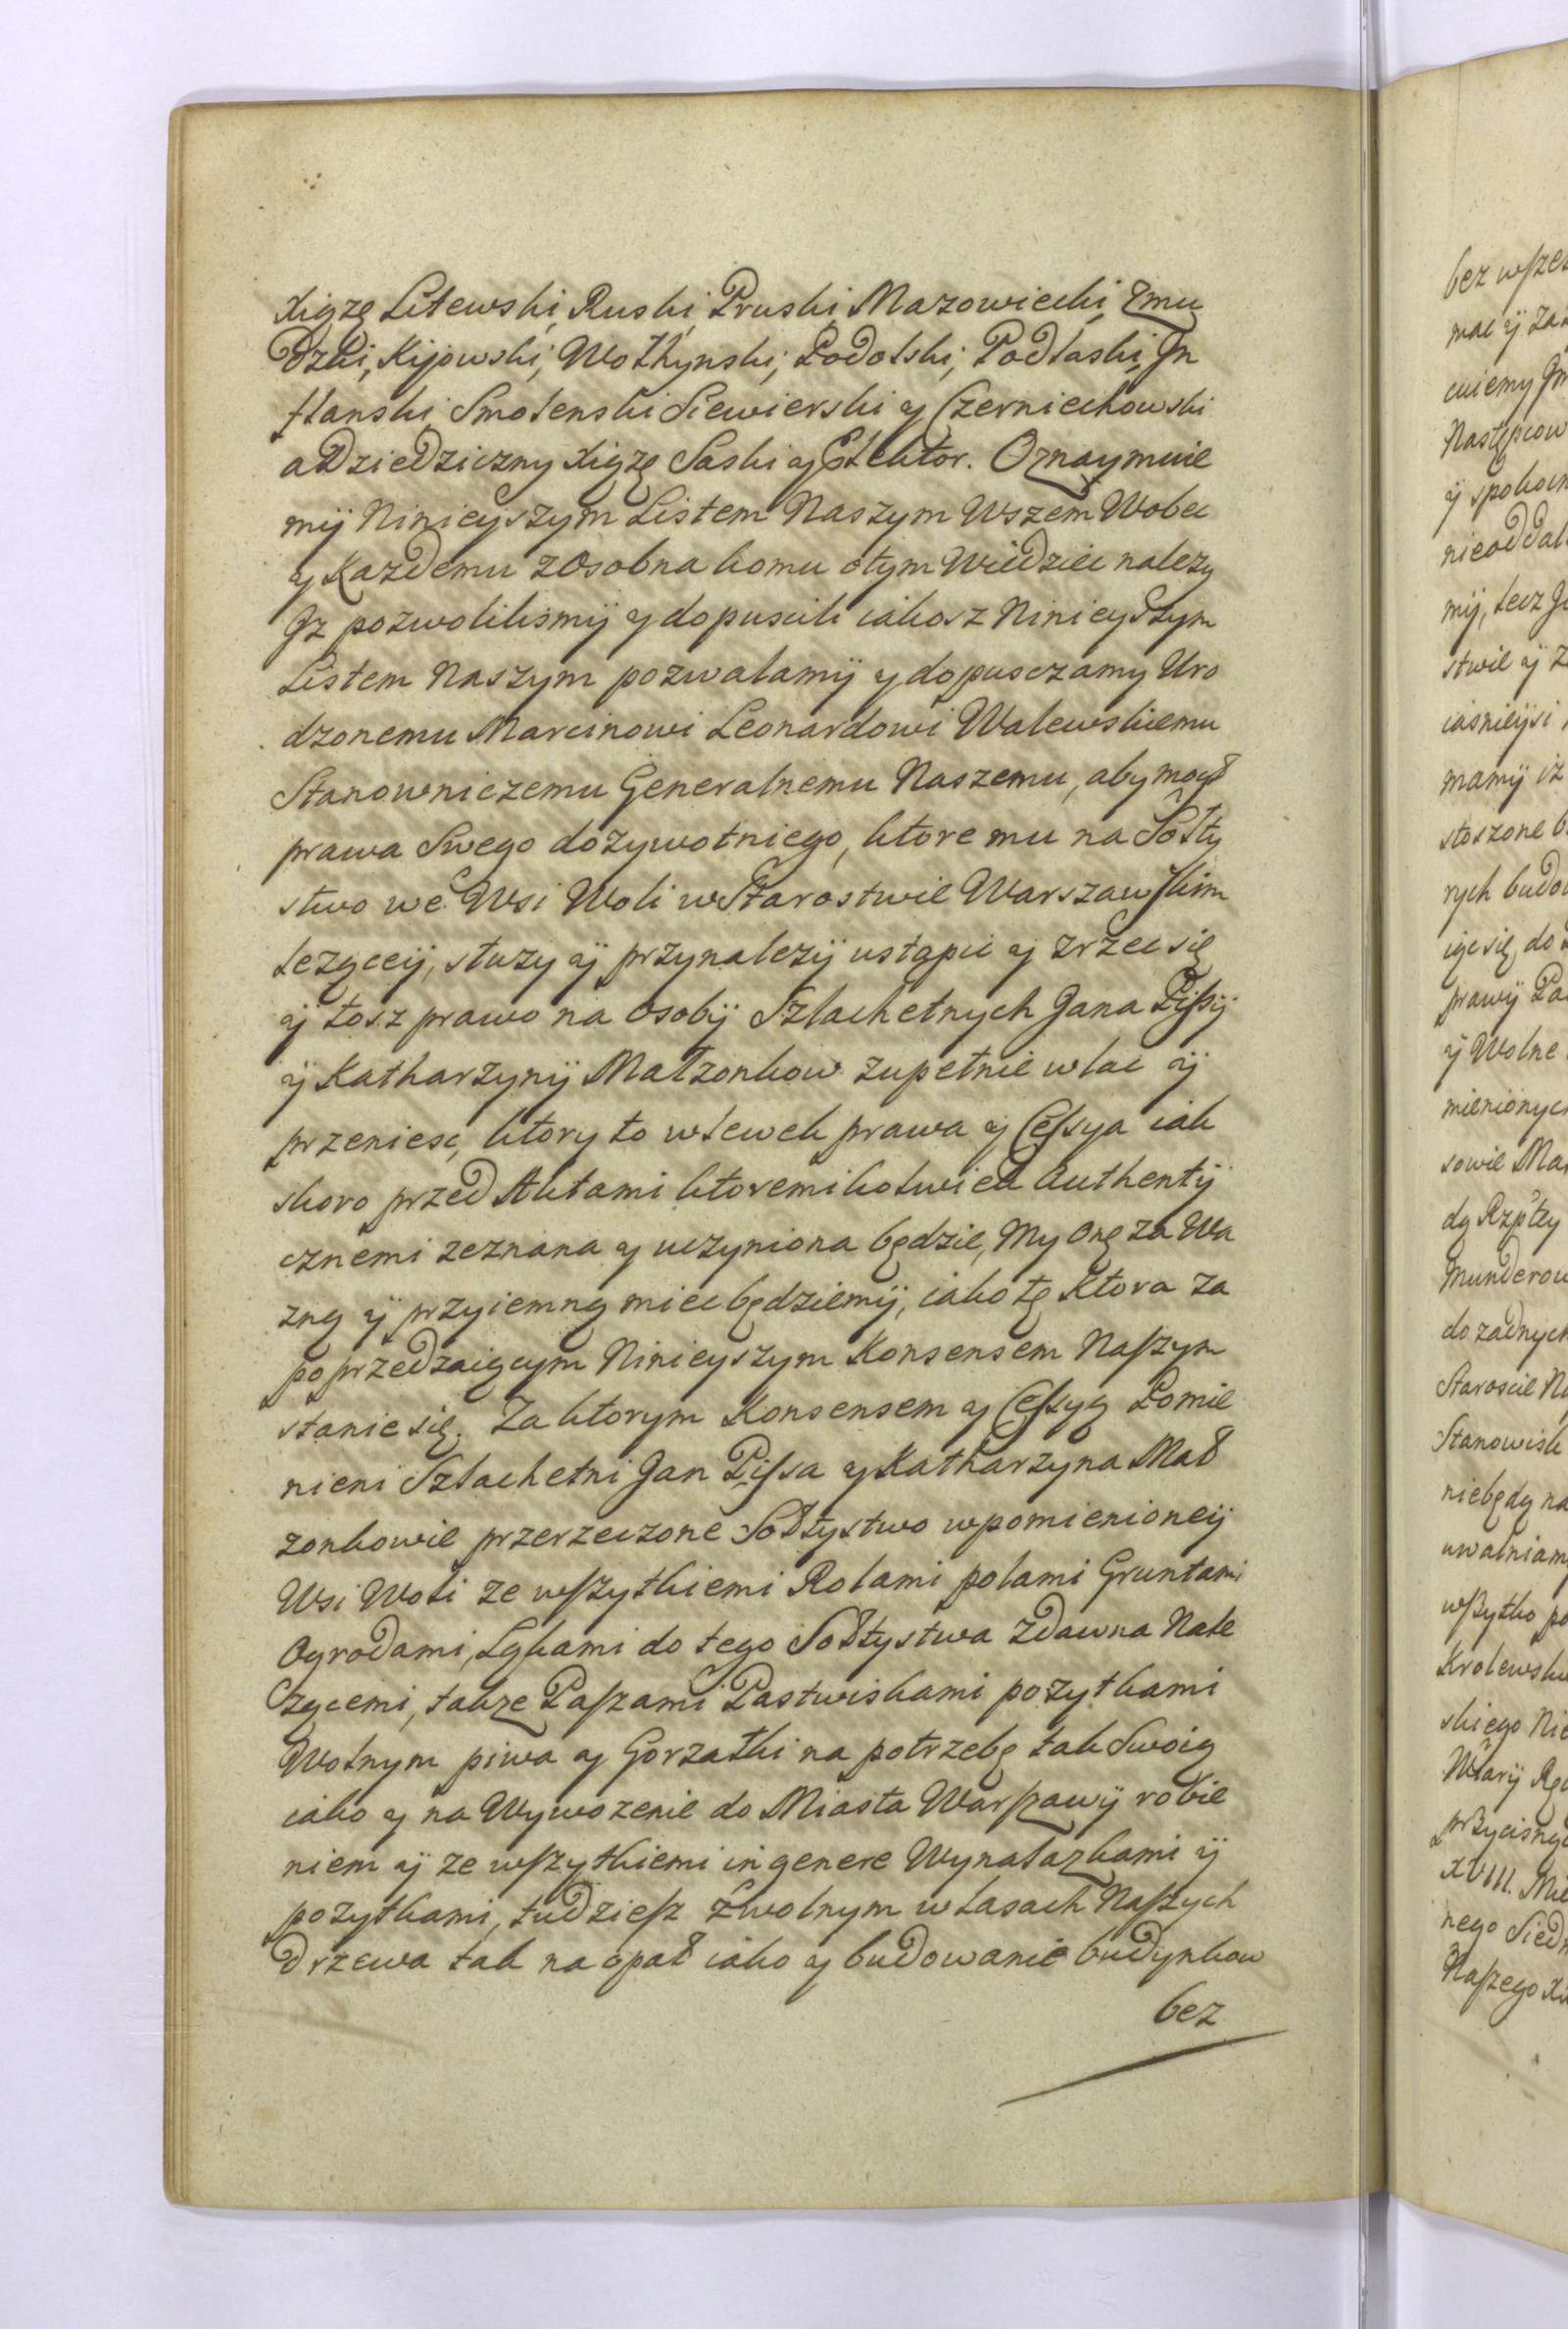 Xiąże Litewski, Ruski, Pruski, Mazowiecki, Zmu
dzki, Kijowski, Wołhynski, Podolski, Podlaski, Jn
flanski, Smolenski Siewierski y Czerniechowski
a Dziedziczny Xiąże Saski y Elektor. Oznaymuie
mÿ Ninieyszym Listem Naszym Wszem Wobec
y Kazdemu z Osobna komu o tym Wiedziec nalezy
Jz pozwolilismÿ y dopuscili iakosz Ninieyszym
Listem Naszym pozwalamÿ y dopusczamy Uro
dzonemu Marcinowi Leonardowi Walewskiemu
Stanowniczemu Generalnemu Naszemu, aby mogł
prawa Swego dozywotniego, ktore mu na Sołty
stwo we Wsi Woli w Starostwie Warszawskim
leząceÿ, słuzy ÿ przynalezÿ ustąpic y zrzec się
ÿ tosz prawo na osobÿ Szlachetnych Jana Pissÿ
ÿ Katharzynÿ Małzonkow zupełnie wlac ÿ
przeniesc, ktory to wlewek prawa y Cessya iak
skoro przed Aktami ktoremikolwiek Authentÿ
cznemi zeznana y uczyniona będzie, My Onę za Wa
zną ÿ przyiemną miec będziemÿ, iako tę Ktora za
poprzedzaiącym Ninieyszym Konsensem Naszym
stanie się. Za ktorym Konsensem y Cessyą Pomie
nieni Szlachetni Jan Pissa y Katharzyna Mał
zonkowie przerzeczone Sołtystwo w pomienioneÿ
Wsi Woli ze wszytkiemi Rolami polami Gruntami
Ogrodami, Łąkami do tego Sołtystwa zdawna Nale
zącemi, takze Paszami Pastwiskami pozytkami
Wolnym piwa y Gorzałki na potrzebę tak Swoią
iako y na Wywozenie do Miasta Warszawÿ robie
niem ÿ ze wszytkiemi in genere Wynalazkami ÿ
pozytkami, tudziesz z wolnym w Lasach Naszych
Drzewa tak na opał iako y budowanie budynkow
bez
bez
mac ÿ
cuiemy
Następcow
ÿ
mÿ, lecz
stwie ÿ
iasnieÿsi
mamÿ iz
stoszone
rych
iąc się do
prawÿ
ÿ Wolne
sowie
do zadnych
Staroscie
niebędą na
wszytko
XVIII.
nego
Naszego